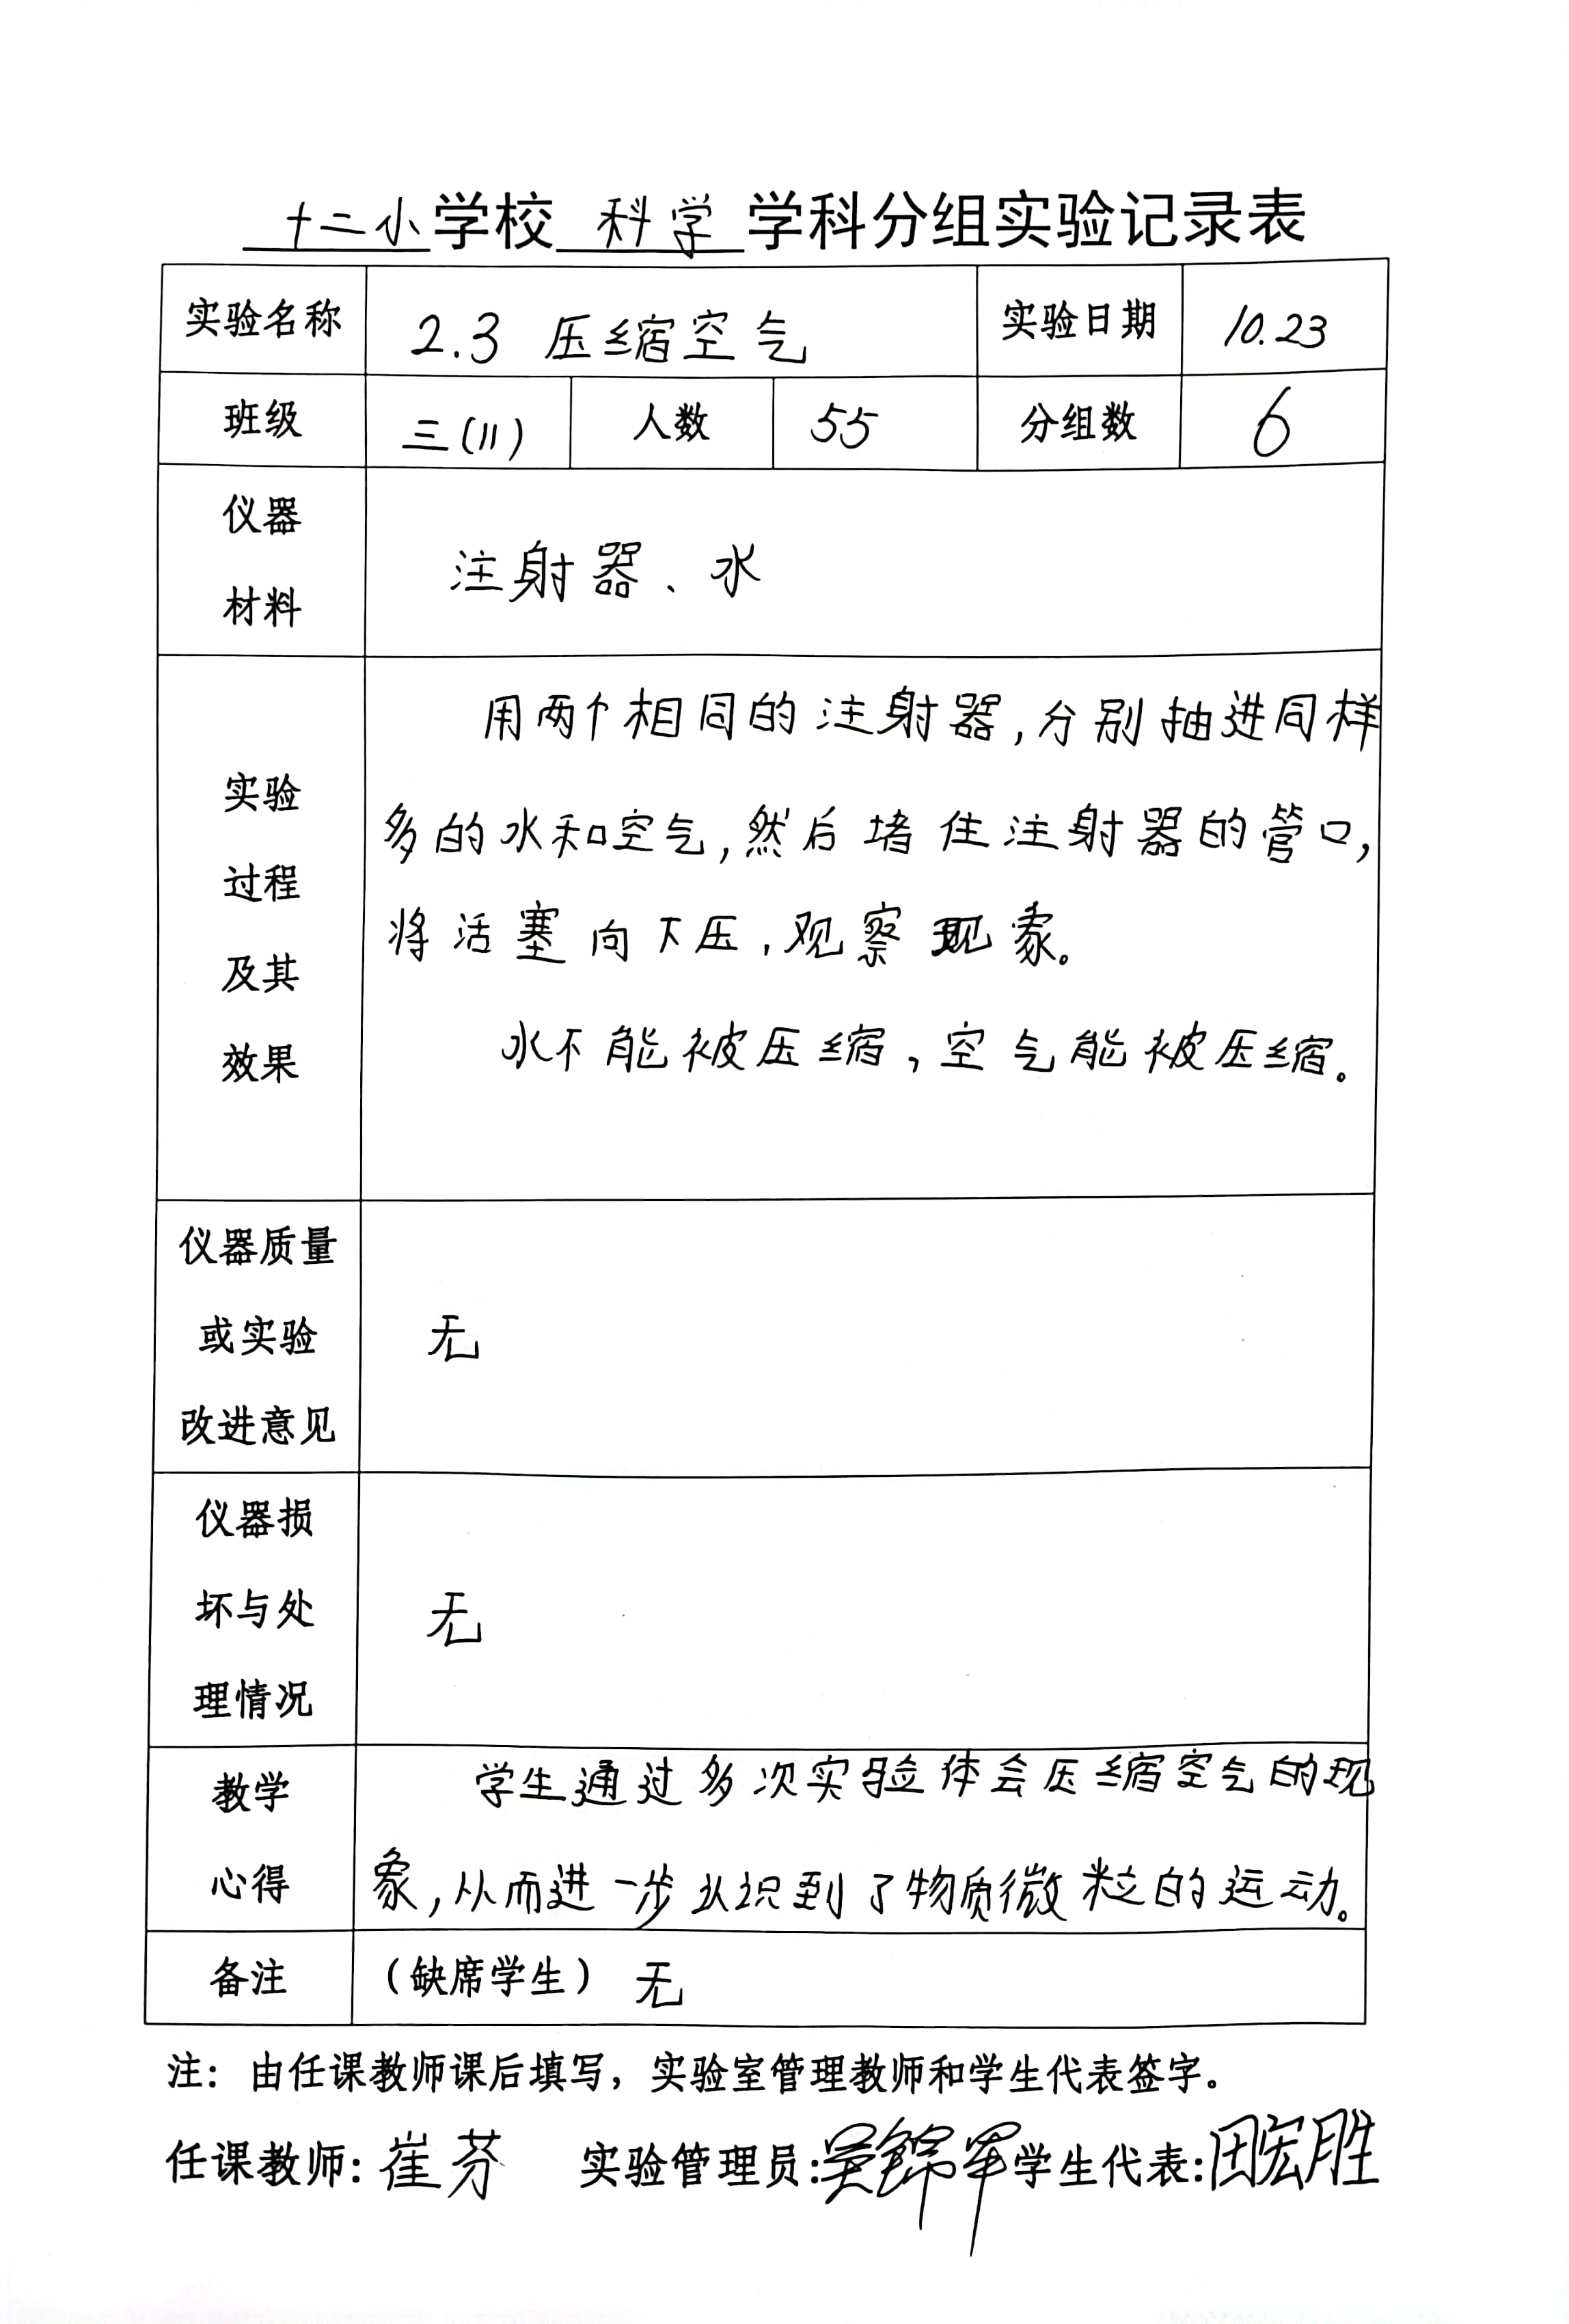 十二小学校 科学 学科分组实验记录表
实验名称 2.3 压缩空气 实验日期 10.23
班级 三(11) 人数 55 分组数 6
仪器
材料
注射器、水
实验
过程
及其
效果
用两个相同的注射器,分别抽进同样
多的水和空气,然后堵住注射器的管口,
将活塞向下压,观察现象。
水不能被压缩,空气能被压缩。
仪器质量
或实验
改进意见
无
仪器损
坏与处
理情况
无
教学
心得
学生通过多次实验体会压缩空气的现
象,从而进一步认识到了物质微粒的运动。
备注 (缺席学生) 无
注:由任课教师课后填写,实验室管理教师和学生代表签字。
任课教师:崔芬 实验管理员:吴锦军 学生代表:田宏胜